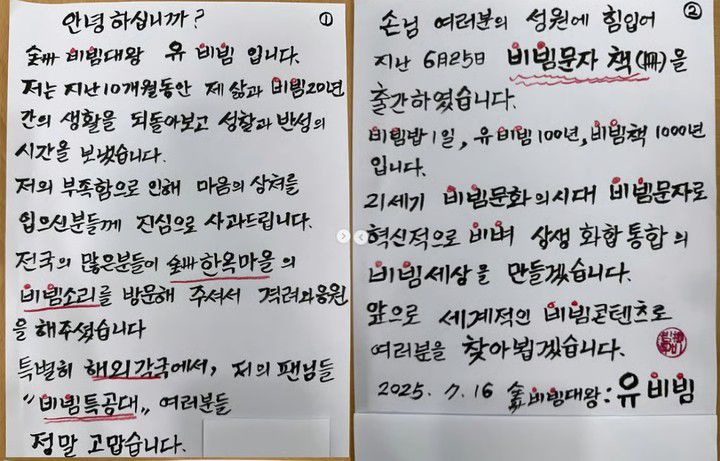 ①
안녕하십니까?
비빔대왕 유비빔 입니다.
저는 지난 10개월동안 제 삶과 비빔20년
간의 생활을 되돌아보고 성찰과 반성의
시간을 보냈습니다.
저의 부족함으로 인해 마음의 상처를
입으신분들께 진심으로 사과드립니다.
전국의 많은분들이 한옥마을의
비빔소리를 방문해 주셔서 격려와응원
을 해주셨습니다
특별히 해외각국에서, 저의 팬님들
"비빔특공대" 여러분들
정말 고맙습니다.
②
손님 여러분의 성원에 힘입어
지난 6月25日 비빔문자 책(冊)을
출간하였습니다.
비빔밥 1일, 유비빔 100년, 비빔책 1000년
입니다.
21세기 비빔문화의시대 비빔문자로
혁신적으로 비벼 상생 화합 통합의
비빔세상을 만들겠습니다.
앞으로 세계적인 비빔콘텐츠로
여러분을 찾아뵙겠습니다.
2025. 7. 16 비빔대왕 : 유비빔